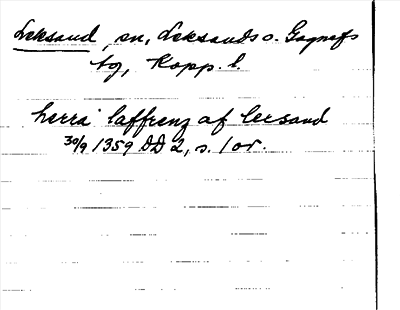 Leksand, sn, Leksands o. Gagnefs
tg, Kopp. l.
herra laffrenz af lecsand
30/9 1359 DD 2, s. 1 or.